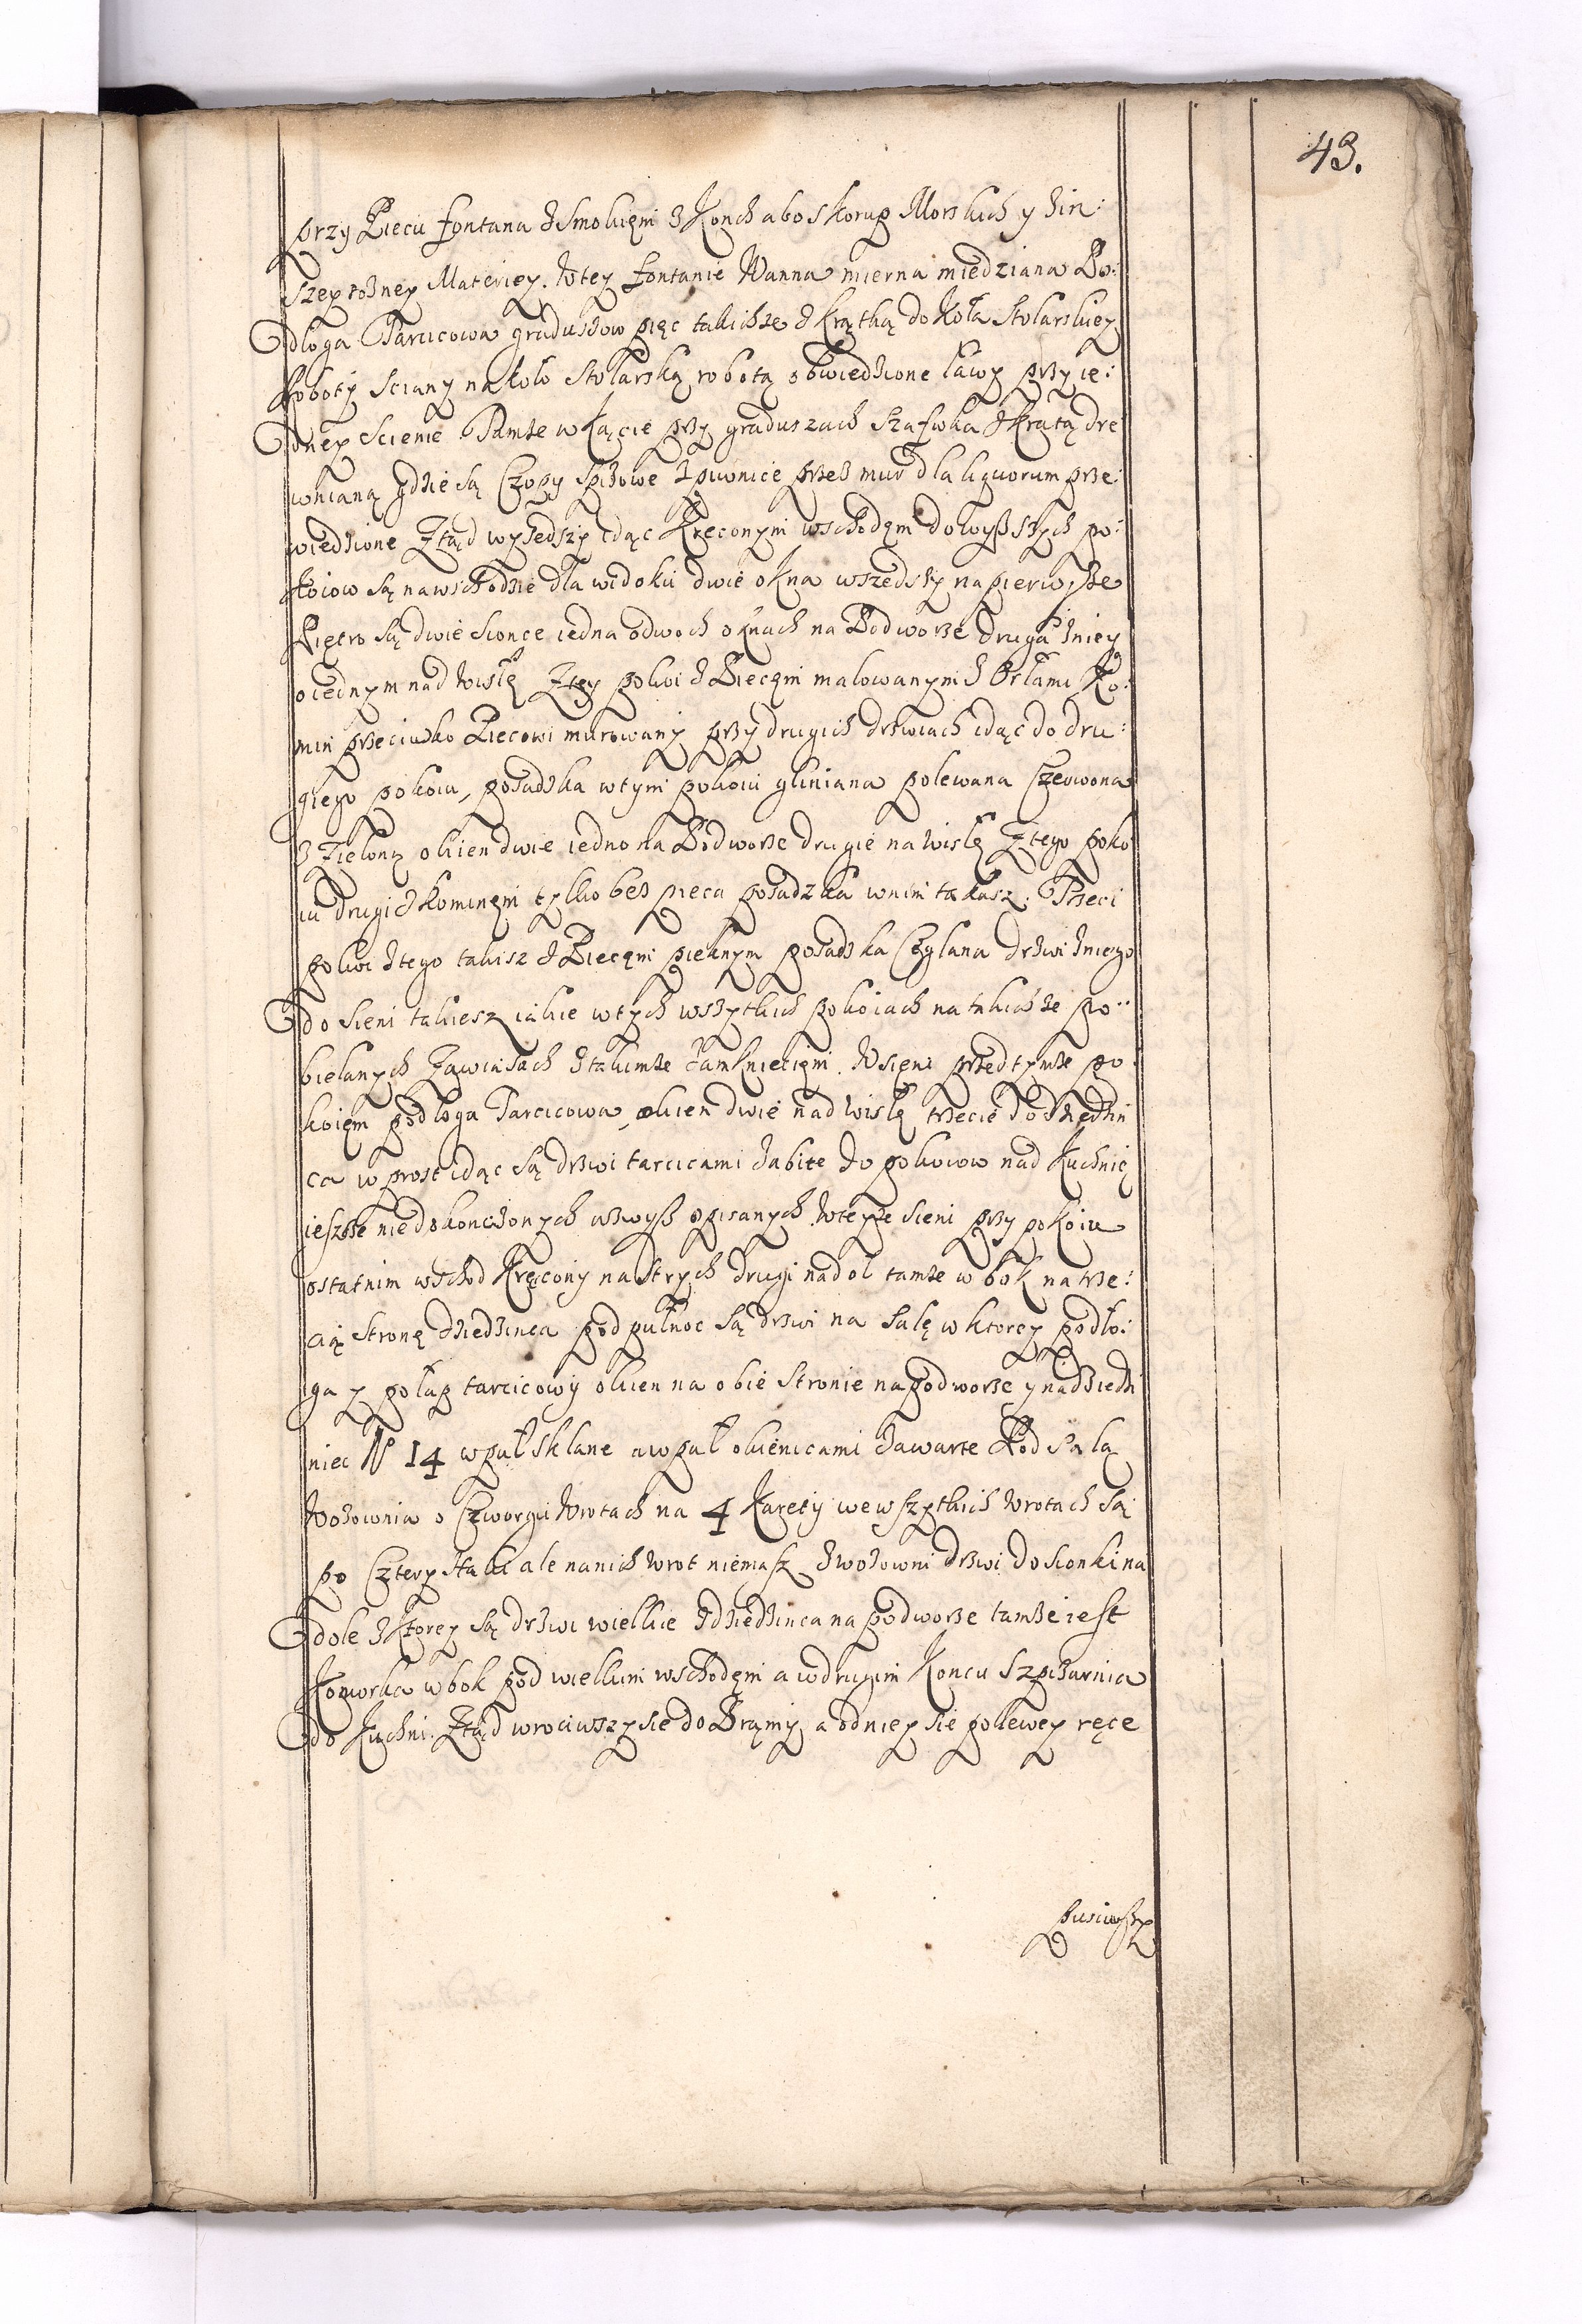 43.
przy Piecu fontana z Smokięm z Konch abo skorup Morskich y zin:
szey rożney Materiey. W tey fontanie Wanna mierna miedziana Po:
dłoga Tarcicowa graduszow pięc takichże z Krątką do Koła Stolarskiey
Roboty Sciany na koło Stolarską robotą obwiedzione ławy przy ie:
dney Scienie Tamże w Kącie przy graduszach Szafwka z Kratą dre
wnianą gdzie są Czopy spiżowe z piwnice przez mur dla liquorum prze:
wiedzione Ztąd wyszedszy idąc Kręconym wschodęm do wyszszych po:
koiow są na wschodzie dla widoku dwie okna wszedszy na pierwsze
Piętro są dwie sionce iedna o dwoch oknach na Podworze druga z niey
o iednym nad Wisłę Z tey pokoi z Piecęm malowanym z Orłami Ko:
min przeciwko Piecowi murowany przy drugich drzwiach idąc do dru:
giego pokoiu, posadzka w tym pokoiu gliniana polewana Czerwona
z Zieloną okien dwie iedno na Podworze drugie na Wisłę Z tego poko
iu drugi z Kominęm tylko bez pieca posadzka w nim takasz. Trzeci
pokoi z tego takisz z Piecęm pieknym posadzka Cyglana drzwi z niego
do Sieni takiesz iakie w tych wszytkich pokoiach na takichże po:
bielanych Zawiasach z takimże zamknieciem. W sięni przed tymże po
koięm podłoga Tarcicowa, okien dwie nad Wisłę trzecie do dziedzin
ca w prost idąc są drzwi tarcicami zabite do pokoiow nad Kuchnię
ieszcze niedokończonych wzwysz opisanych. W teyże sieni przy pokoiu
ostatnim wschod Kręcony na Strych drugi na doł tamże w bok na trze:
cią stronę dziedzinca pod pułnoc są drzwi na Salę w ktorey podło:
ga y połap tarcicowy okien na obie Stronie na podworze y na dziedzi
niec N 14 w puł sklane a w puł okienicami zawarte Pod Salą
Wozownia o Czworgu Wrotach na 4 Karety we wszytkich Wrotach są
po Cztery Haki ale na nich Wrot niemasz z wozowni drzwi do sionki na
dole z Ktorey są drzwi wielkie z dziedzinca na podworze tamże iest
Komorka w bok pod wielkim wschodęm a w drugim Koncu Szpiżarnia
do Kuchni. Ztąd wrociwszy sie do Bramy a od niey sie po lewey ręce
pusciwszy